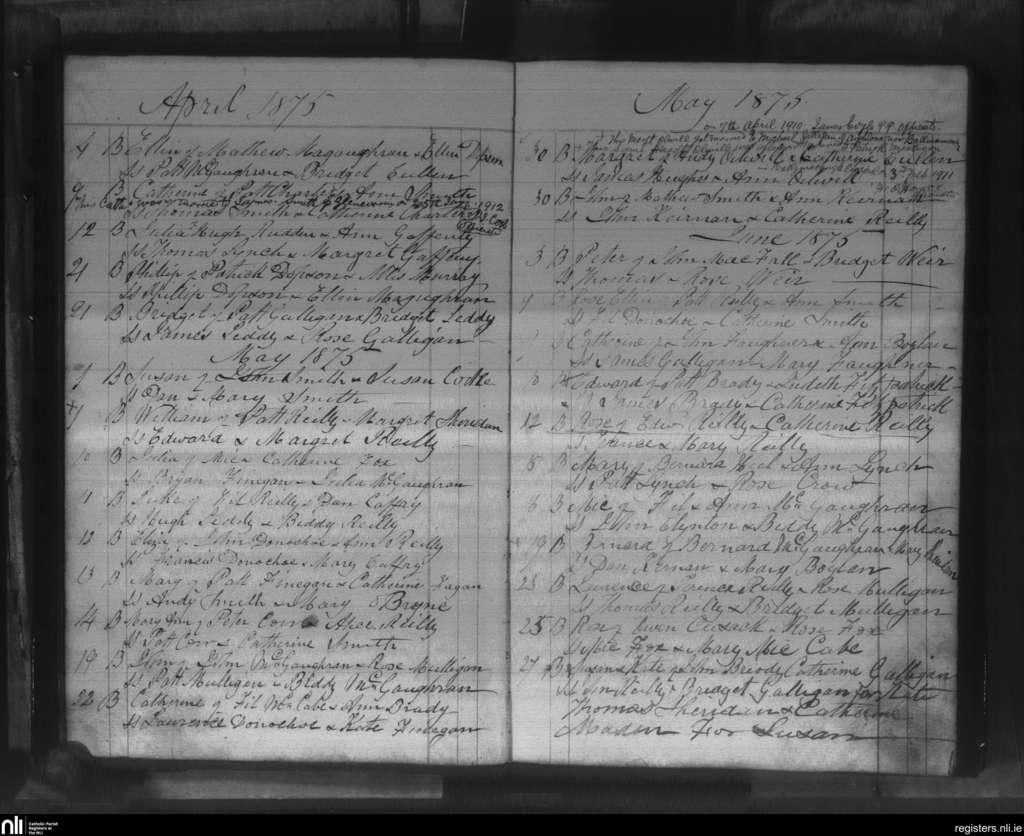 April 1875
4 B Ellen of Mathew Magaughran & Ellen Dyson
Ss Patt McGaughran & Bridget Cullen
9 B Catherine of Patt Charles & Ann Smith
This Cath was married to James Smith of 1912
Ss Thomas Smith & Catherine
12 B Julia Hugh Rudden & Ann Gaffeny
Ss Thomas Lynch & Margret Gaffeny
21 B Phillip of Patrick Dopson & Miss Murray
Ss Phillip Dopson & Ellen Magughran
21 B Bridget of Patt Galligan & Bridget Leddy
Ss James Leddy & Rose Galligan
May 1875
7 B Susan of John Smith & Susan Cooke
Ss Dan & Mary Smith
7 B William of Patt Reilly & Margret Sheridan
Ss Edward & Margret Reilly
10 B Julia of Mic & Catherine Fox
Ss Bryan Finegan & Julia McGaughran
11 B Luke of Fil Reilly & Dan Caffay
Ss Hugh Leddy & Biddy Reilly
12 B Eliza of John Donochoe & Ann Reilly
Ss Francis Donochoe & Mary Caffay
13 B Mary of Patt Finegan & Catherine Fagan
Ss Andy Smith & Mary O Bryne
14 B Mary Ann of Peter Corr & Alice Reilly
Ss Patt Corr & Catherine Smith
19 B John of John McGaughran & Rose Mulligan
Ss Patt Mulligan & Biddy McGaughran
22 B Catherine of Fil McCabe & Ann Brady
Ss Laurence Donochoe & Kate Finegan
May 1875
on 7th April 1910. James P.P. officiate
30 B Margret of Andy & Catherine Cullen
Ss James Hughes & Ann
30 B John of Mathew Smith & Ann Keirnan
Ss John Keirnan & Catherine Reilly
June 1875
3 B Peter of John Mac Fall & Bridget Weir
Ss Thomas & Rose Weir
Rose Ellen of Patt Reilly & Ann Smith
Ss Fil Donochoe & Catherine Smith
B Catherine of John Faughner & Ann Boylan
Ss James Galligan & Mary Faughner
Edward of Patt Brady & Judeth Fitzpatrick
Brady & Catherine Fitzpatrick
12 B Rose of Edw Reilly & Catherine Reilly
& Mary Reilly
B Mary of Bernard & Ann Lynch
Ss Patt Lynch & Rose Crow
B Mic of Fil & Ann McGaughran
Ss John Clynton & Biddy McGaughran
19 B Bernard of Bernard McGaughran & Mary
Ss Dan Kernan & Mary Boylan
23 B Laurence of Terence Reilly & Rose Mulligan
Ss Thomas Reilly & Bridget Mulligan
25 B Rose of Owen Cusack & Rose Fox
Ss Pete Fox & Mary Mic Cabe
27 B Susan & Kate of John Briody Catherine Galligan
Ss Jn Reilly & Bridget Galligan for Kate
Thomas Sheridan & Catherine
Maden For Susan
nli
Catholic Parish
Registers at
the NLI
registers.nli.ie